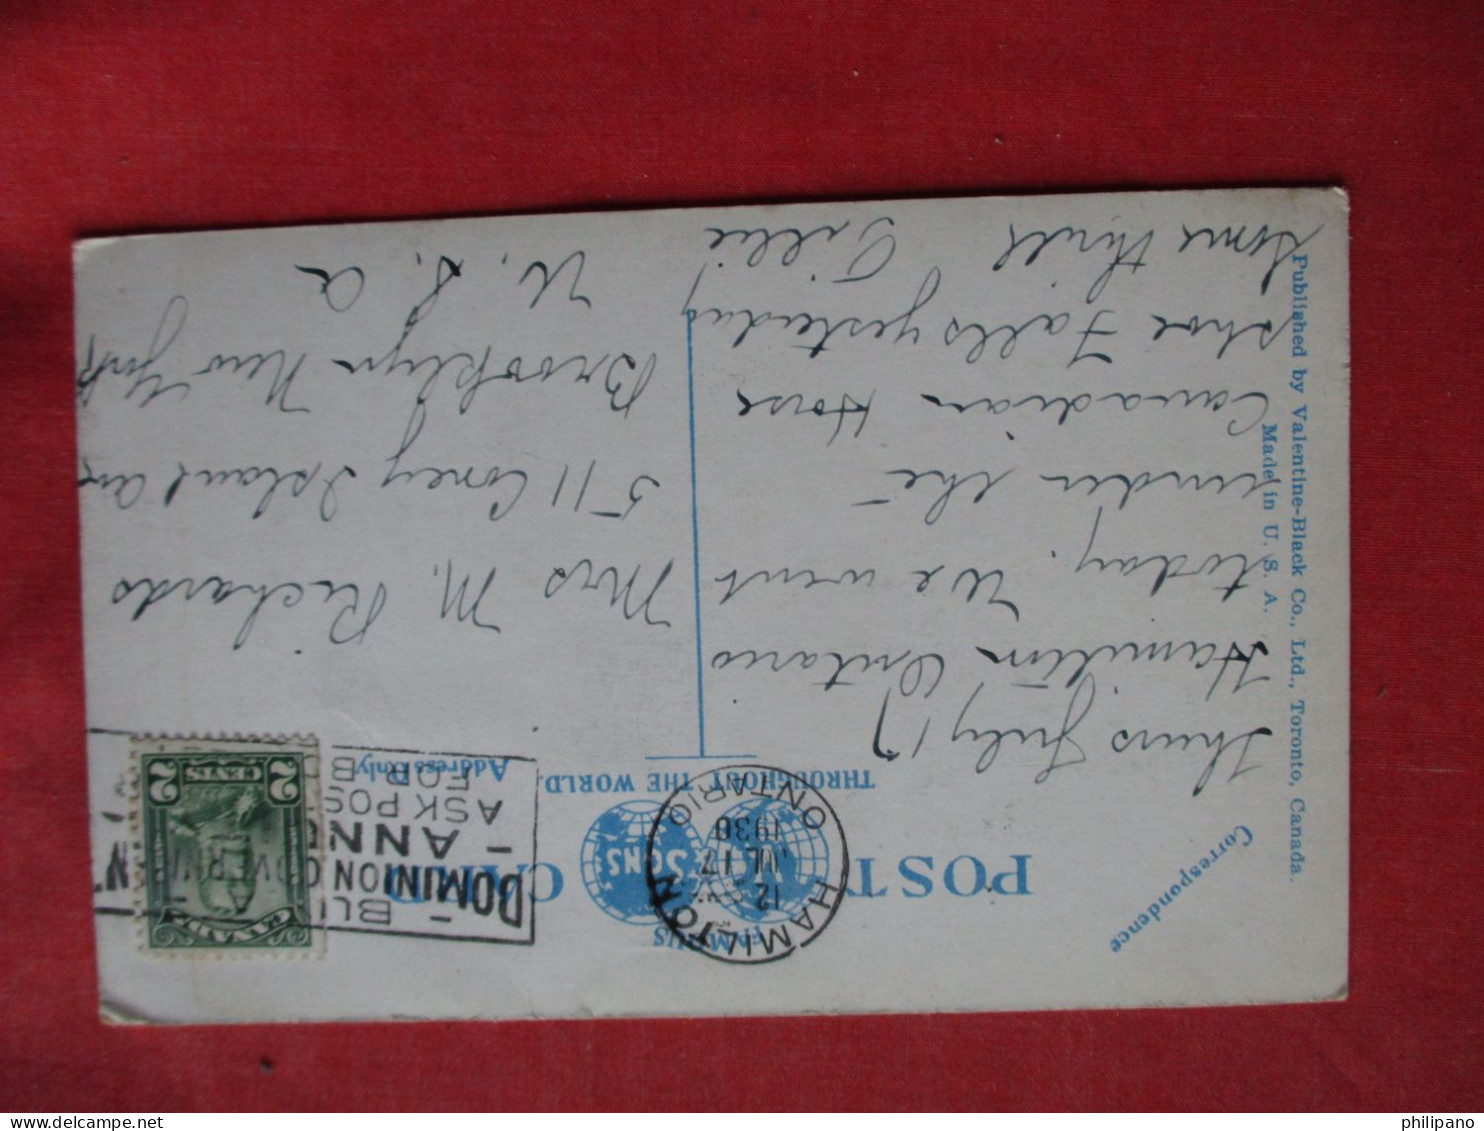 POST CARD
FAMOUS
SONS
THROUGHOUT THE WORLD
Correspondence
Address Only
Published by Valentine-Black Co., Ltd., Toronto, Canada.
Made in U. S. A.
HAMILTON
12
JUL 17
1930
ONTARIO
DOMINION GOVERN
ANN
ASK POS
FOR B
CANADA
2 CENTS 2
Thurs July 17
Hamilton Ontario
today. We went
under the
Canadian Horse
shoe Falls yesterday
Some thrill Tillie
Mrs M. Richards
511 Coney Island av
Brooklyn New York
U. S. A
philipano